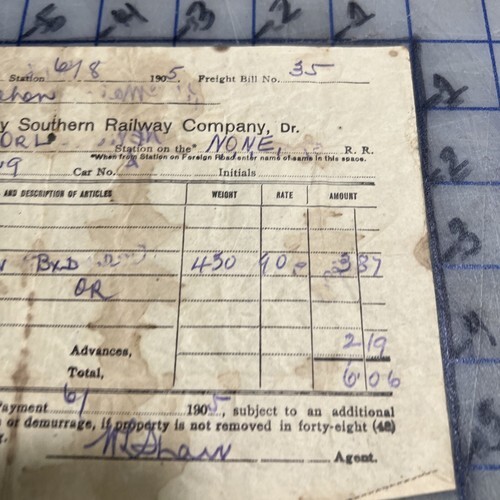 Station 6/8 1905, Freight Bill No. 35
y Southern Railway Company, Dr.
Station on the "NONE, R. R.
"When from Station on Foreign Road enter name of same in this space.
Car No. Initials
AND DESCRIPTION OF ARTICLES WEIGHT RATE AMOUNT
BxD 430 90 3 87
OR
Advances, 2 19
Total, 6 06
Payment 6/ 1905, subject to an additional
or demurrage, if property is not removed in forty-eight (48)
Agent.